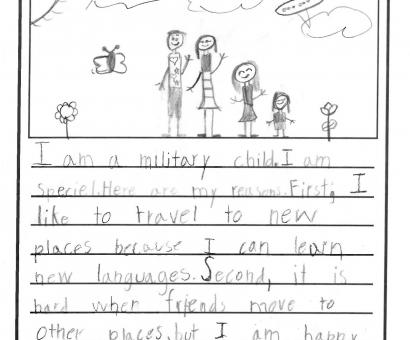 I am a military child. I am
speciel. Here are my reasons. First, I
like to travel to new
places because I can learn
new languages. Second, it is
hard when friends move to
other places, but I am happy